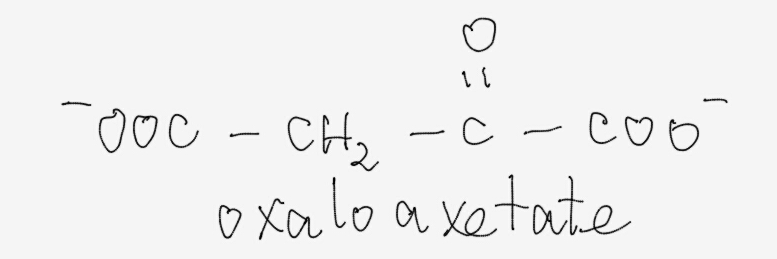 O
⁻OOC – CH₂ – C – COO⁻
oxaloaxetate